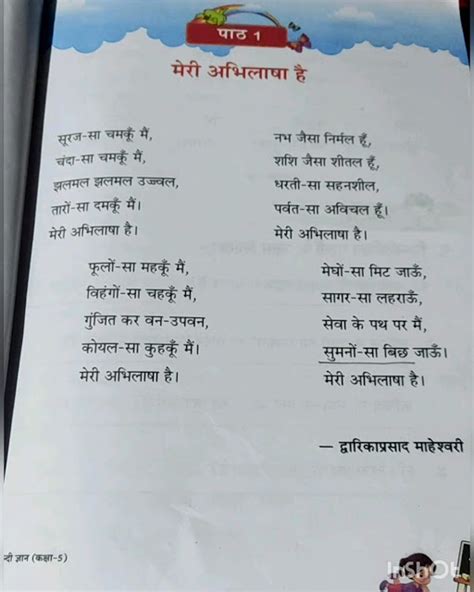 पाठ 1
मेरी अभिलाषा है
सूरज-सा चमकूँ मैं,
चंदा-सा चमकूँ मैं,
झलमल झलमल उज्ज्वल,
तारों-सा दमकूँ मैं।
मेरी अभिलाषा है।
फूलों-सा महकूँ मैं,
विहंगों-सा चहकूँ मैं,
गुंजित कर वन-उपवन,
कोयल-सा कुहकूँ मैं।
मेरी अभिलाषा है।
नभ जैसा निर्मल हूँ,
शशि जैसा शीतल हूँ,
धरती-सा सहनशील,
पर्वत-सा अविचल हूँ।
मेरी अभिलाषा है।
मेघों-सा मिट जाऊँ,
सागर-सा लहराऊँ,
सेवा के पथ पर मैं,
सुमनों-सा बिछ जाऊँ।
मेरी अभिलाषा है।
— द्वारिकाप्रसाद माहेश्वरी
न्दी ज्ञान (कक्षा-5)
InShOt